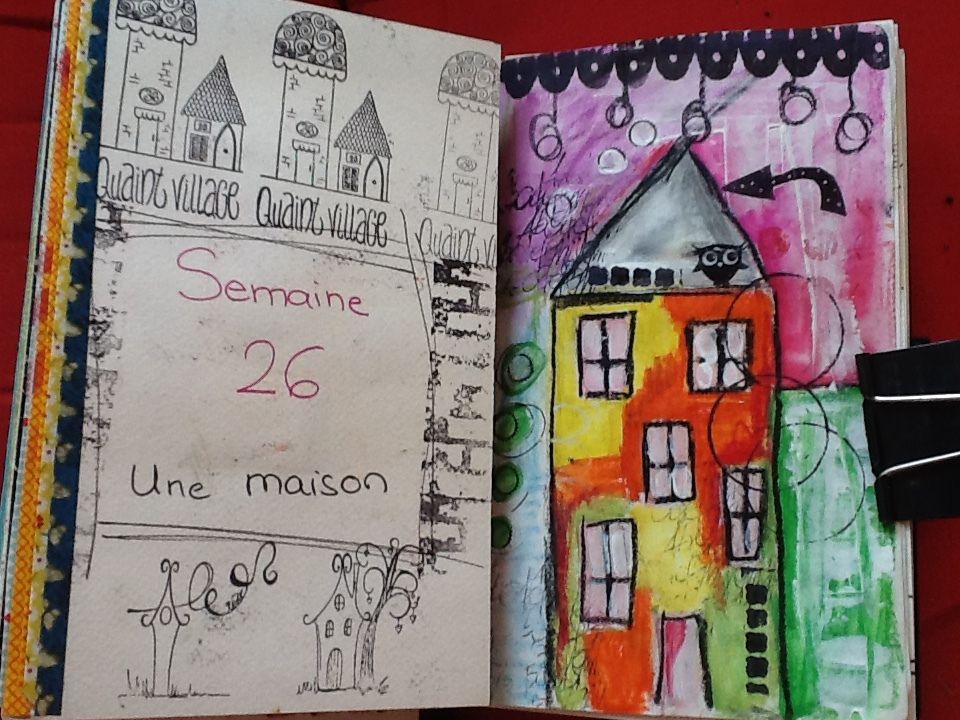 Quaint village Quaint village Quaint v
Semaine
26
Une maison